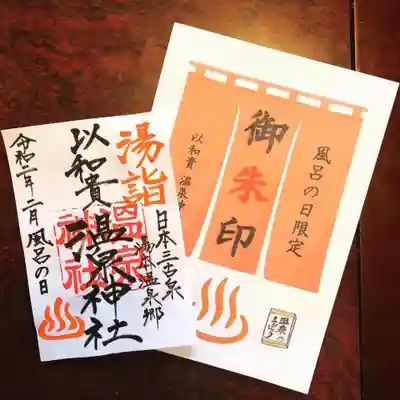 湯詣
日本三古泉
湯本温泉郷
以和貴 温泉神社
温泉神社
令和二年二月 風呂の日
風呂の日限定
御朱印
以和貴 温泉